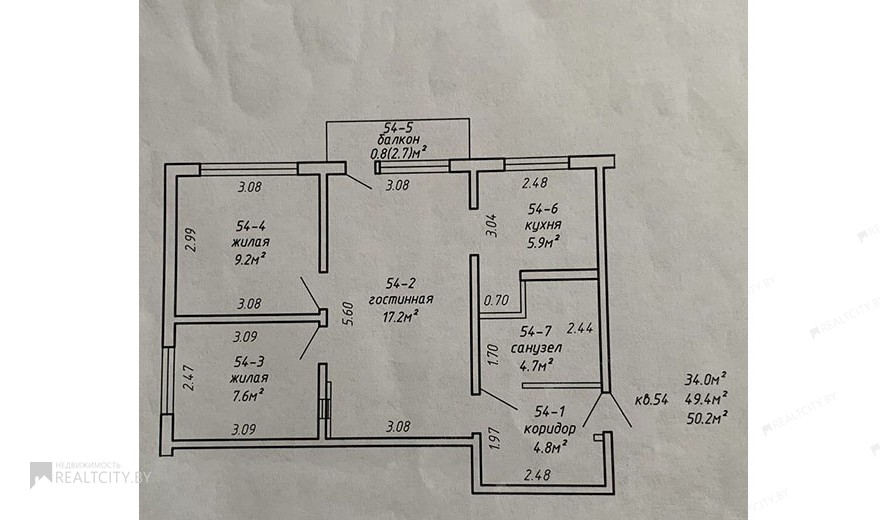 54-5
балкон
0.8(2.7)м²
3.08
3.08
2.48
54-4
жилая
9.2м²
2.99
3.08
54-6
кухня
5.9м²
3.04
54-2
гостинная
17.2м²
5.60
0.70
3.09
54-3
жилая
7.6м²
2.47
3.09
54-7
санузел
4.7м²
2.44
1.70
3.08
54-1
коридор
4.8м²
1.97
2.48
кв.54
34.0м²
49.4м²
50.2м²
НЕДВИЖИМОСТЬ
REALTCITY.BY
REALTCITY.BY
REALTCITY.BY
REALTCITY.BY